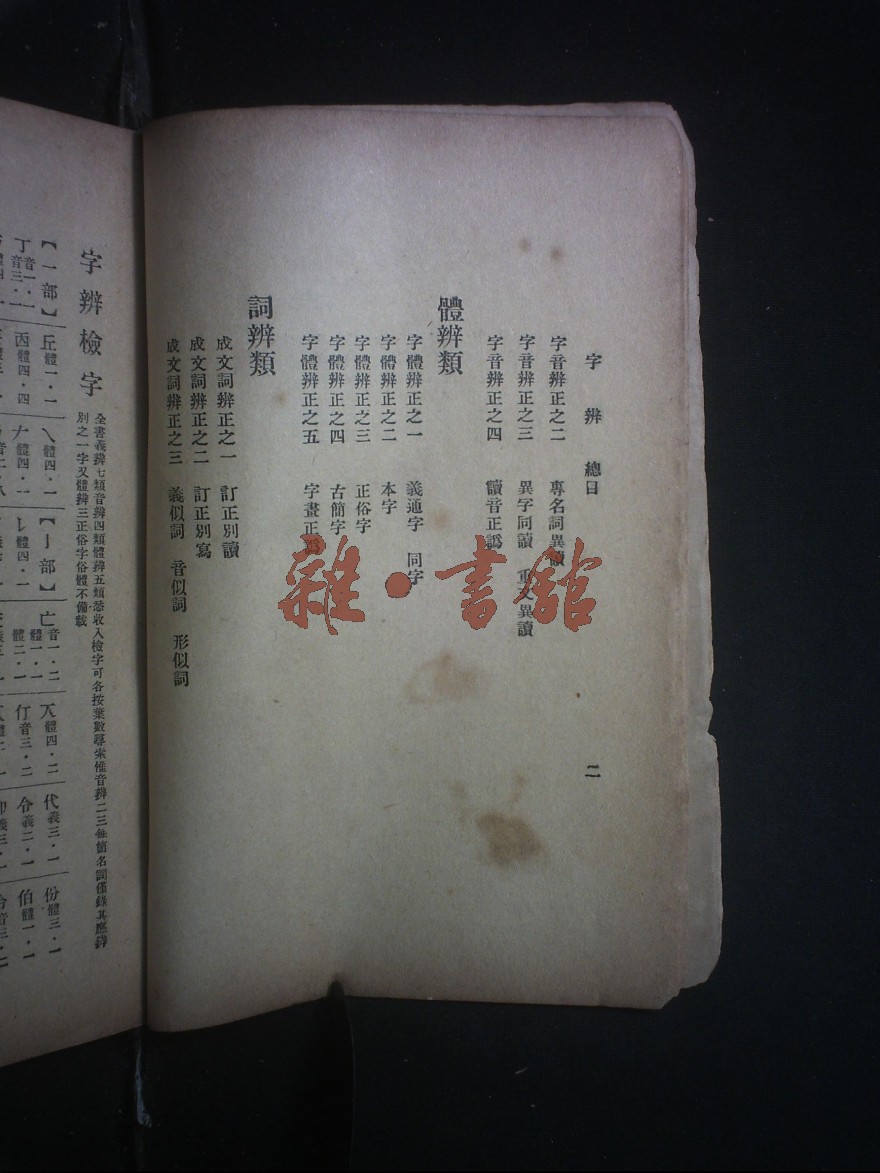 字辨 總目
二
字音辨正之二 專名詞異讀
字音辨正之三 異字同讀 重文異讀
字音辨正之四 讀音正譌
體辨類
字體辨正之一 義通字 同字
字體辨正之二 本字
字體辨正之三 正俗字
字體辨正之四 古簡字
字體辨正之五 字畫正譌
詞辨類
成文詞辨正之一 訂正別讀
成文詞辨正之二 訂正別寫
成文詞辨正之三 義似詞 音似詞 形似詞
雜·書館
字辨檢字
全書義辨七類音辨四類體辨五類悉收入檢字可各按葉數尋索惟音辨二三每簡名詞僅錄其應辨
別之一字又體辨三正俗字俗體不備載
【一部】
丁 音一·一 音三·一
丘 體一·一
丙 體四·四
乀 體四·一
𠂇 體四·一
【亅部】
亅 體四·一
亡 音一·二 體一·一 體二·一
兲 體四·二
仃 音三·二
代 義三·一
令 義二·一
份 體三·一
伯 體一·一